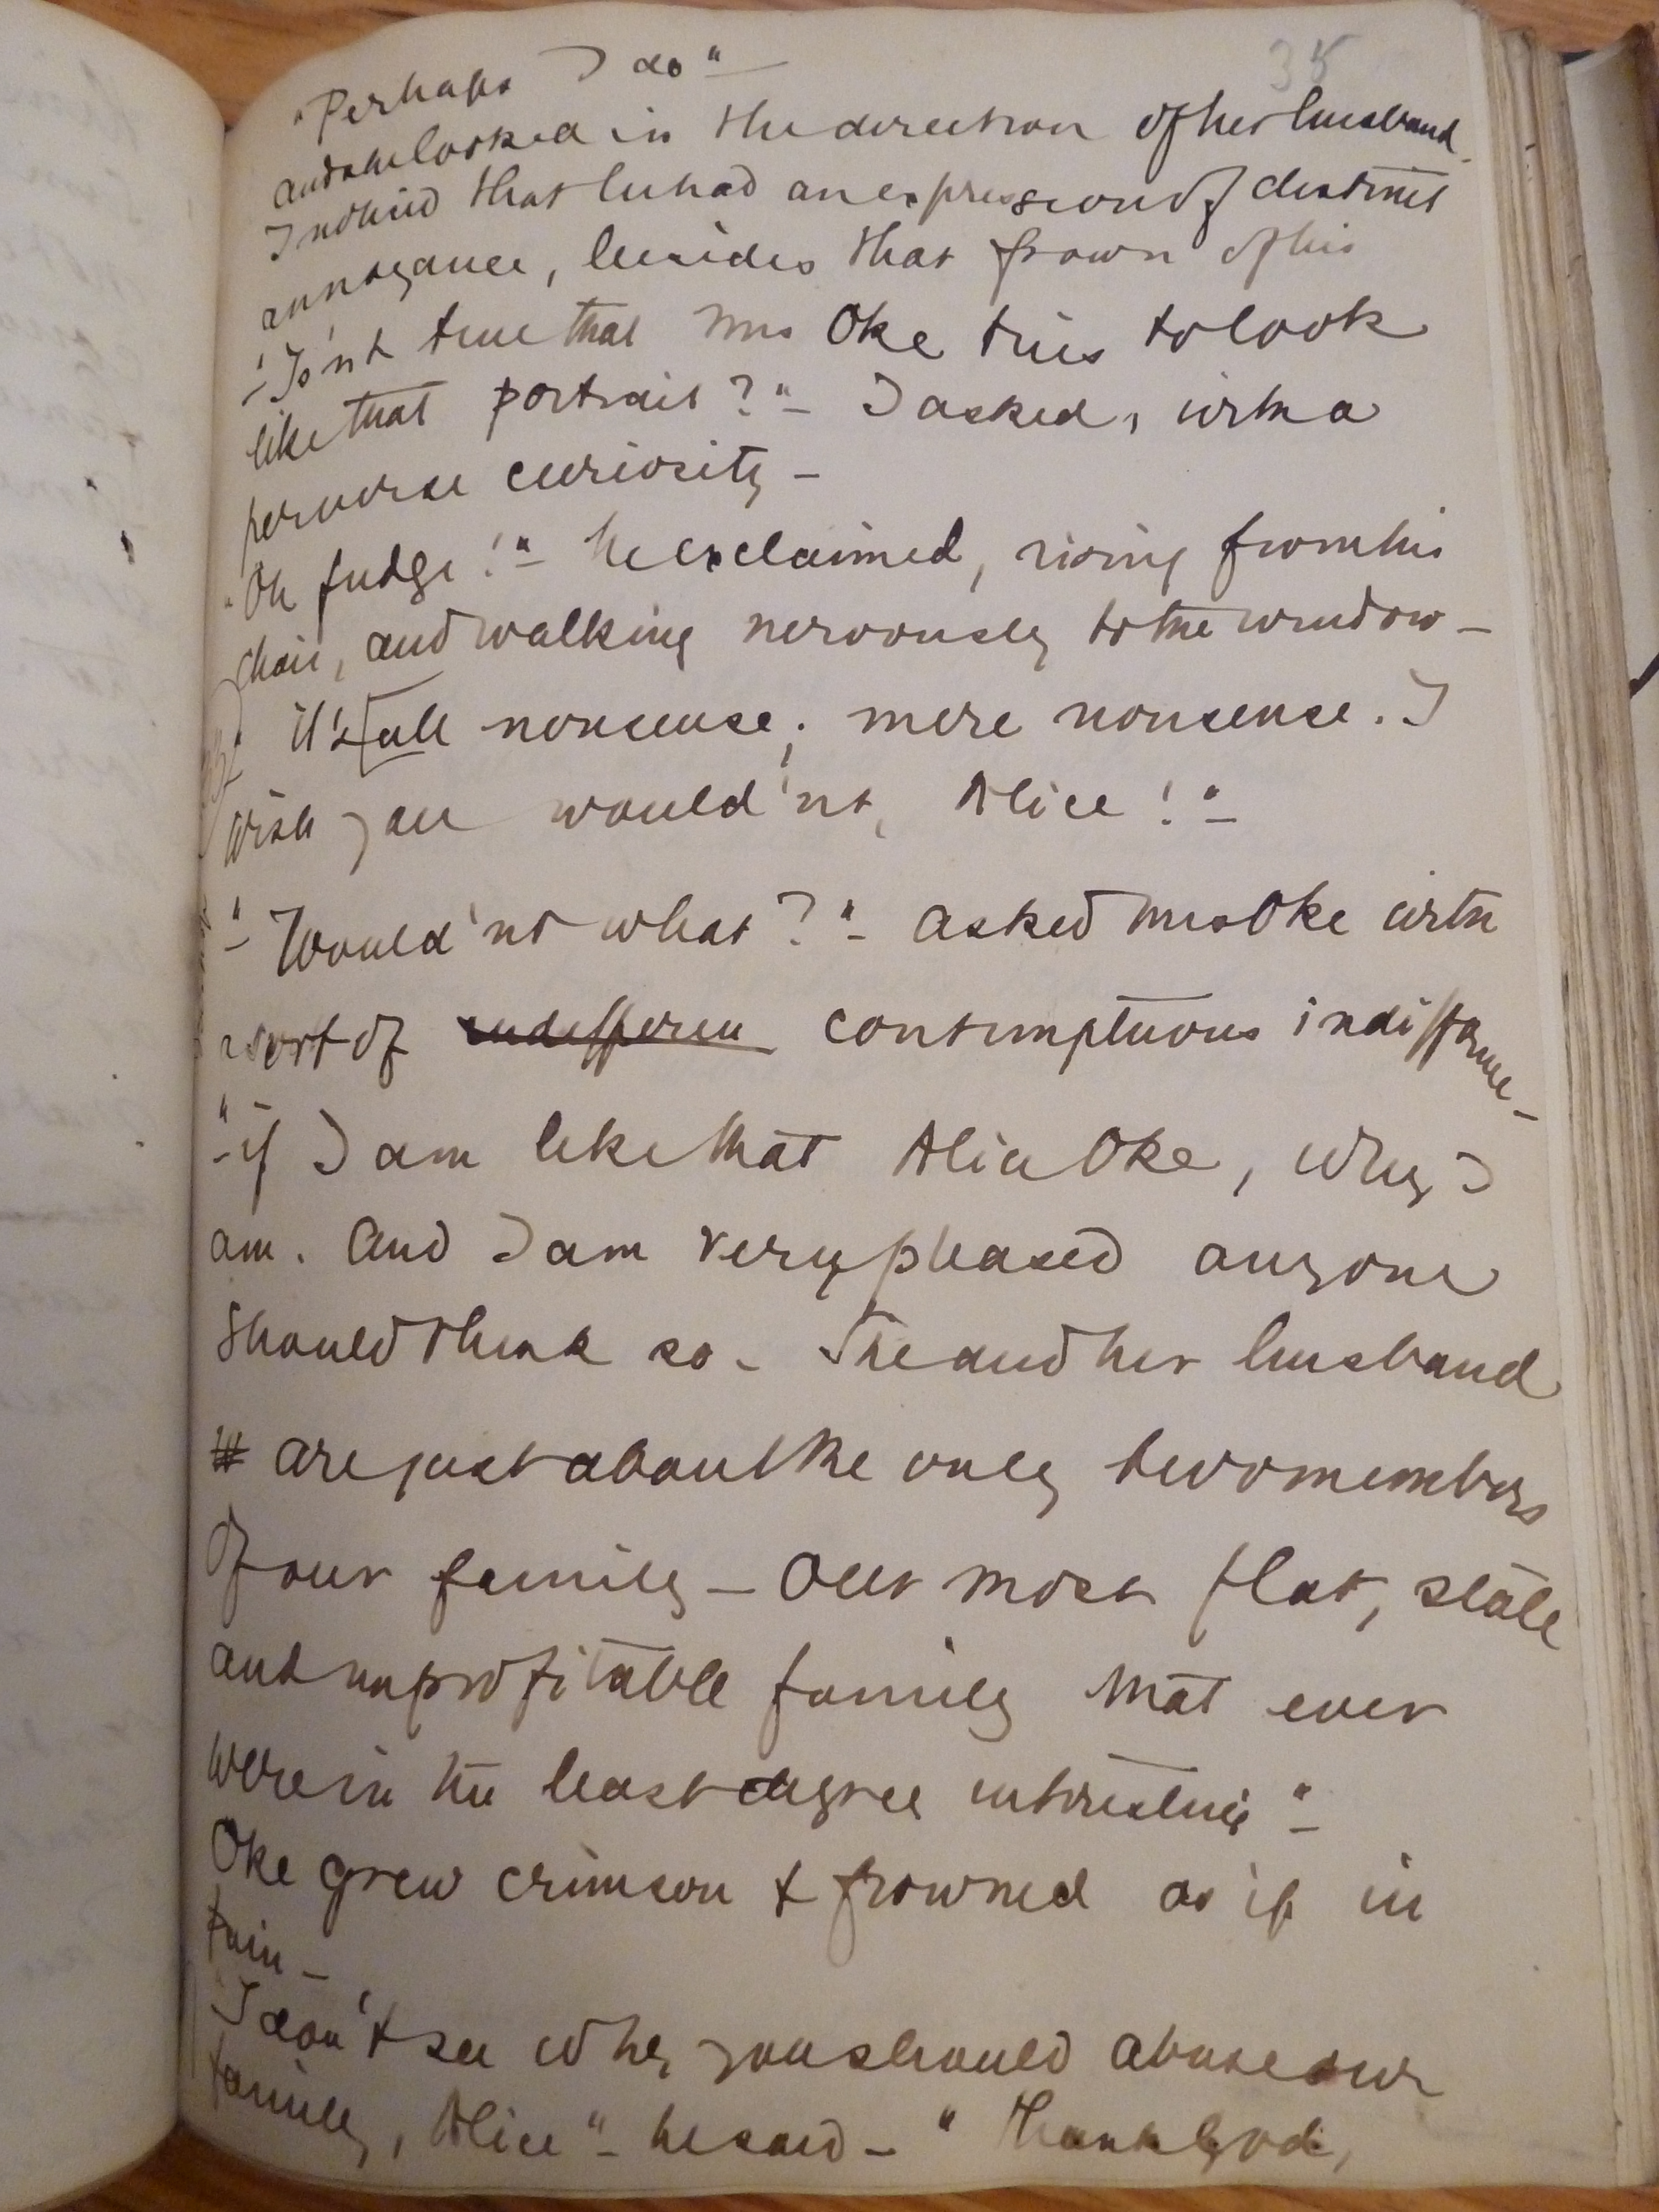 35
"Perhaps I do" —
and she looked in the direction of her husband.
I noticed that he had an expression of distinct
annoyance, besides that frown of his
"Is'nt true that Mrs Oke tries to look
like that portrait?" — I asked, with a
perverse curiosity —
"Oh fudge!" — he exclaimed, rising from his
chair, and walking nervously to the window —
it's all nonsense; mere nonsense. I
wish you would'nt, Alice!" —
"Would'nt what?" — asked Mrs Oke with
a sort of indifferen contemptuous indifference —
"if I am like that Alice Oke, why I
am. And I am very pleased anyone
should think so — She and her husband
are just about the only two members
of our family — our most flat, stale
and unprofitable family that ever
were in the least degree interesting" —
Oke grew crimson & frowned as if in
pain —
"I don't see why you should abuse our
family, Alice" — he said — "Thank God,